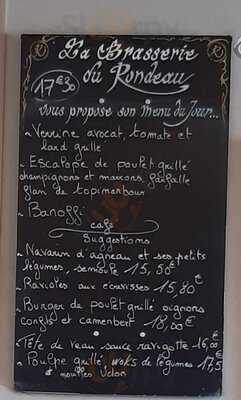 La Brasserie
du Rondeau
17€30
vous propose son Menu du Jour...
~ Verrine avocat, tomate et
lard grillé
~ Escalope de poulet grillé
champignons et marrons, farfalle
flan de topinambour
~ Banoffi
café
Suggestions
~ Navarin d'agneau et ses petits
légumes, semoule 15,50€
~ Ravioles aux écrevisses 15,80€
~ Burger de poulet grillé oignons
confits et camembert 18,00€
~ Tête de veau sauce ravigotte 16,00€
~ Poulpe grillé, woks de légumes 17,5
et nouilles Udon